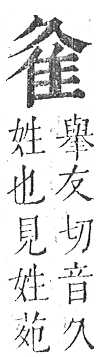 舉友切音久
姓也見姓苑